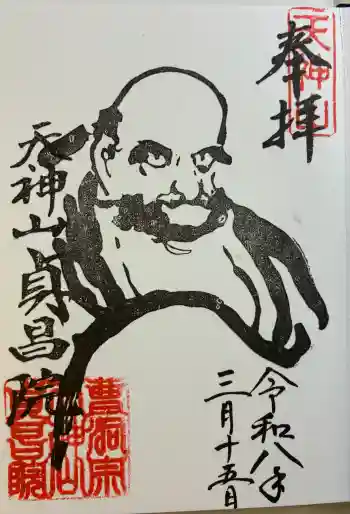 天神山
奉拝
天神山貞昌院
令和八年
三月十五日
曹洞宗
天神山
貞昌院